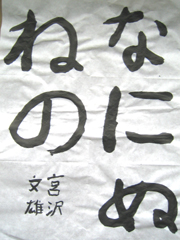 なにぬ
ねの
宮沢
文雄